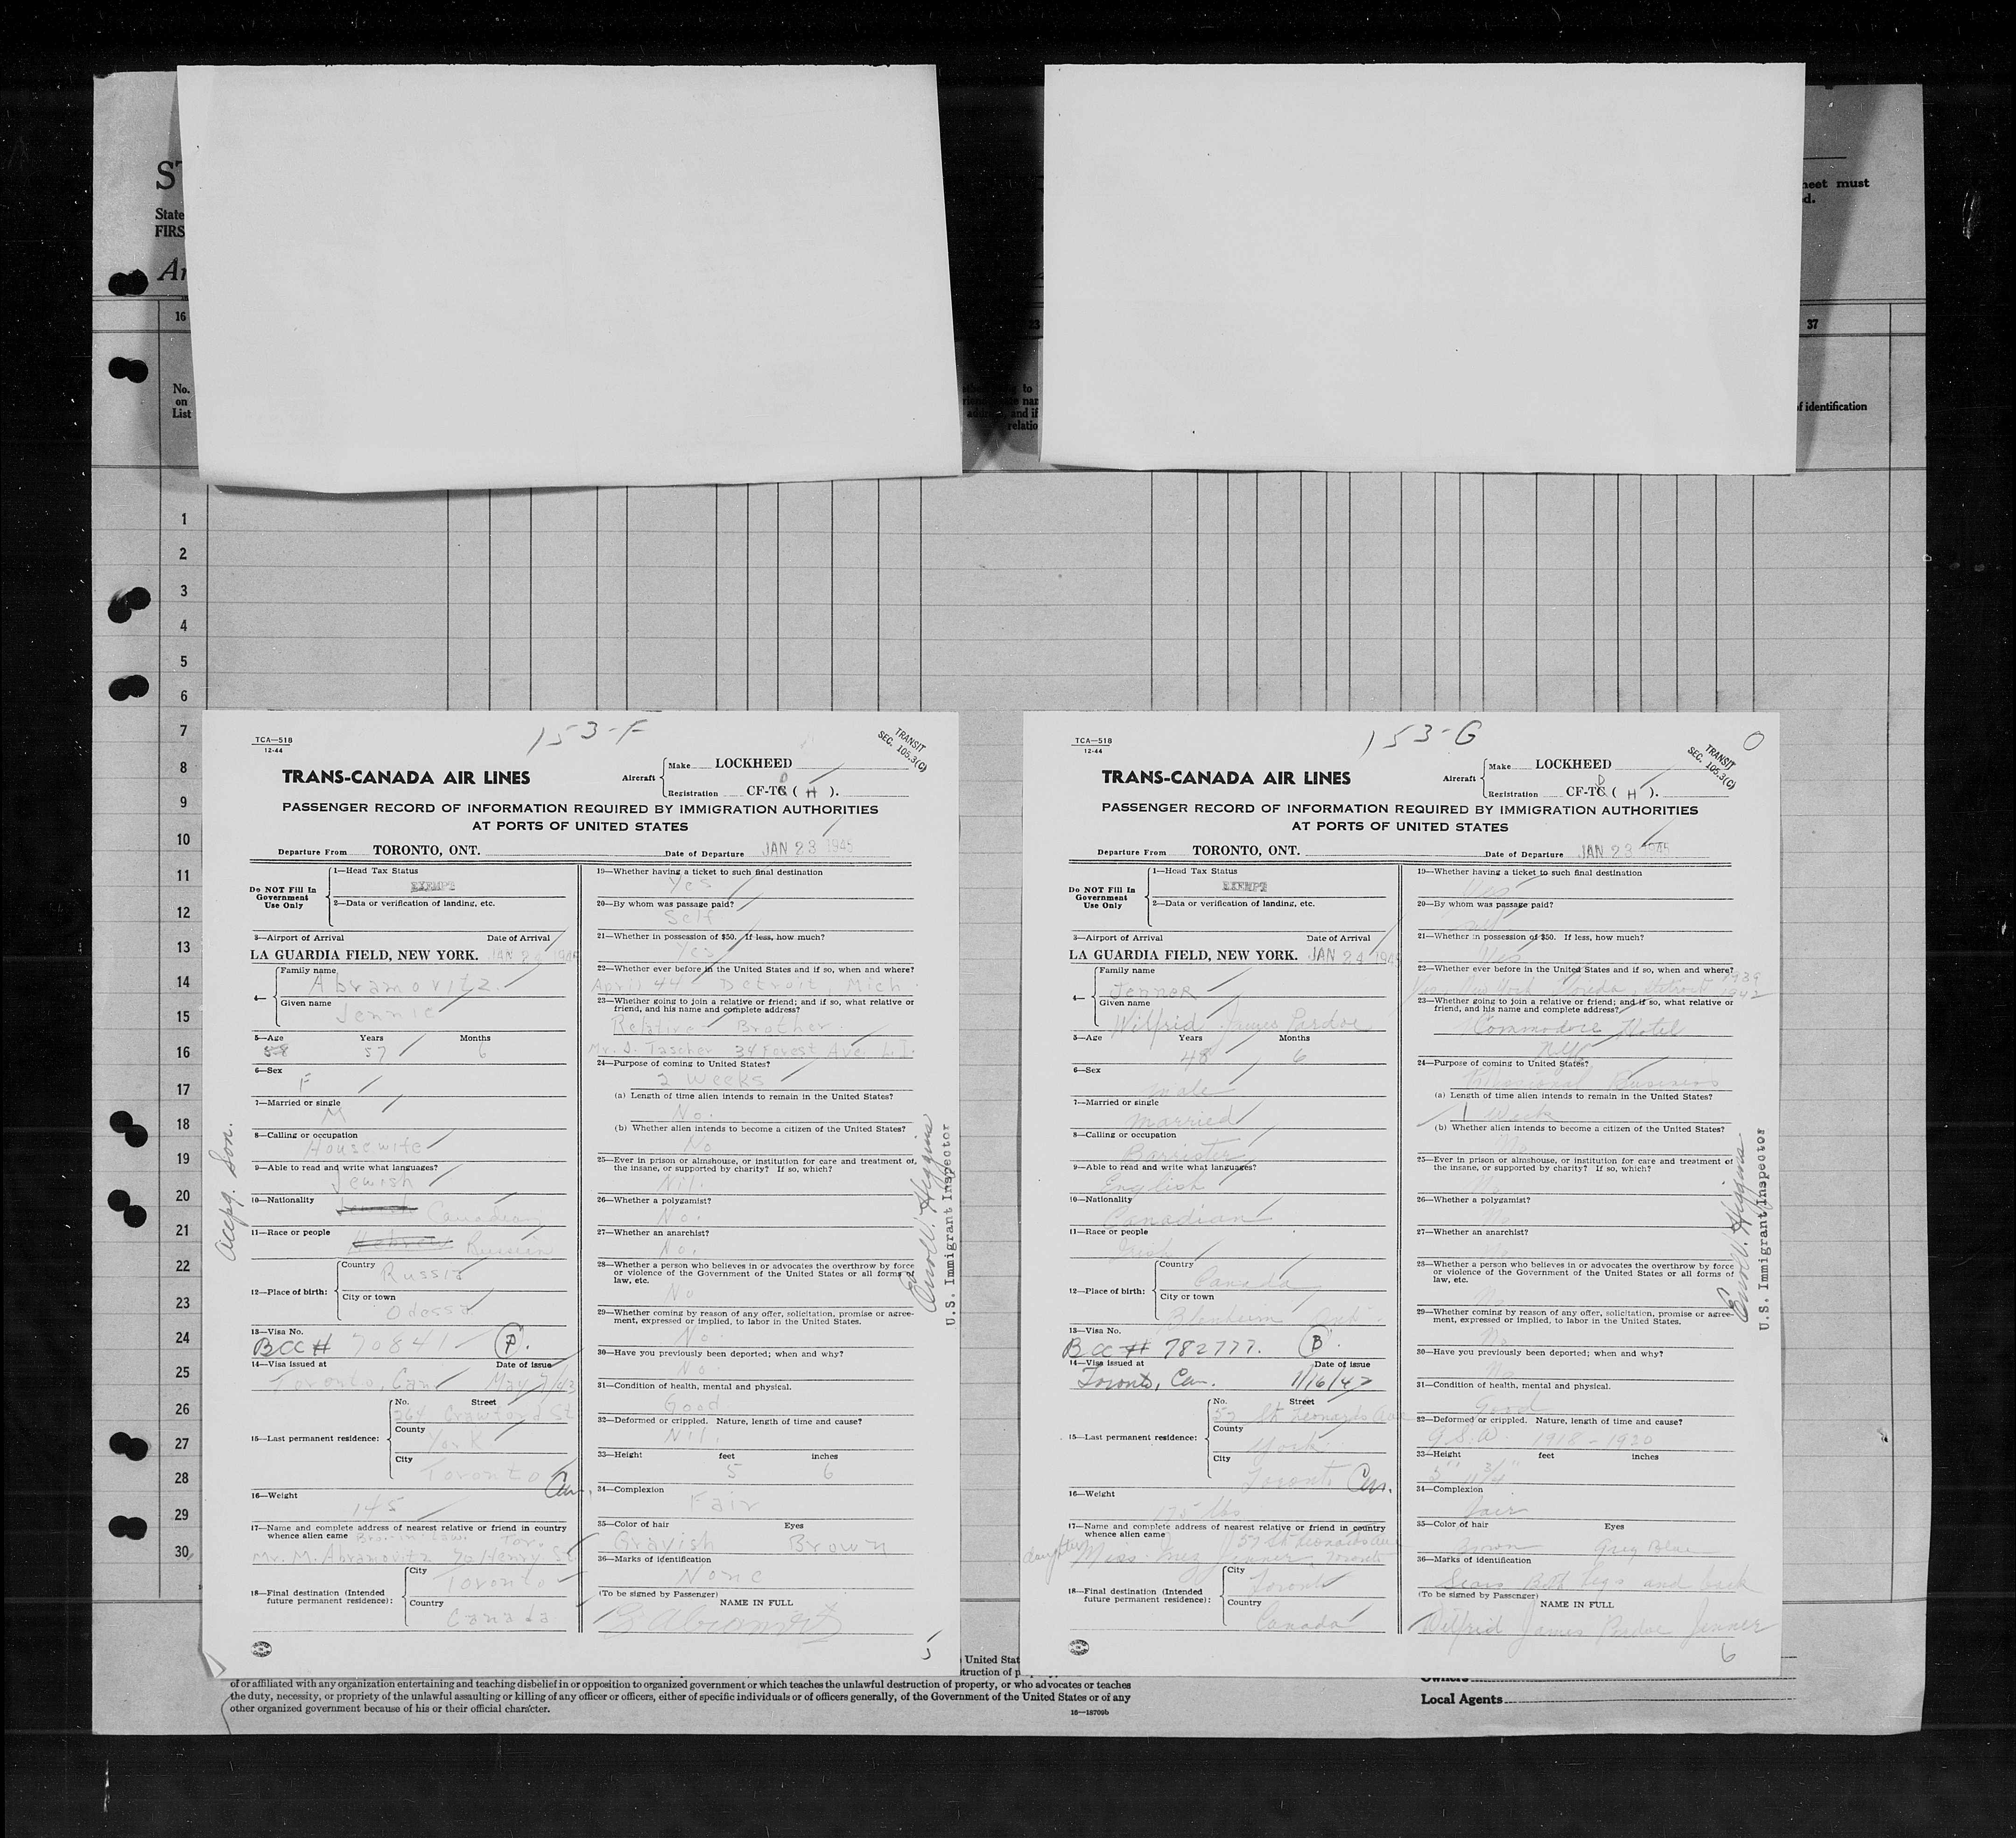 ST
State
FIRS
heet must
d.
16
23
37
No.
on
List
and if
relatio
of identification
1
2
3
4
5
6
7
8
9
10
11
12
13
14
15
16
17
18
19
20
21
22
23
24
25
26
27
28
29
30
153-F
TCA—518
12-44
TRANSIT
SEC. 105.3(C)
TRANS-CANADA AIR LINES
Aircraft
Make LOCKHEED
Registration CF-TC ( H ).
D
PASSENGER RECORD OF INFORMATION REQUIRED BY IMMIGRATION AUTHORITIES
AT PORTS OF UNITED STATES
Departure From TORONTO, ONT.
Date of Departure JAN 23 1945
Do NOT Fill In
Government
Use Only
1—Head Tax Status
EXEMPT
2—Data or verification of landing, etc.
3—Airport of Arrival Date of Arrival
LA GUARDIA FIELD, NEW YORK. JAN 24 1945
4—
Family name
Abramovitz
Given name
Jennie
5—Age Years Months
58 57 6
6—Sex
F
7—Married or single
M
8—Calling or occupation
Housewife
9—Able to read and write what languages?
Jewish
10—Nationality
Canadian
11—Race or people
Hebrew Russian
12—Place of birth:
Country
Russia
City or town
Odessa
13—Visa No.
BCC # 70841 P.
14—Visa issued at Date of issue
Toronto, Can May 7/43
15—Last permanent residence:
No. Street
264 Crawford St
County
York
City
Toronto Can.
16—Weight
145
17—Name and complete address of nearest relative or friend in country
whence alien came Bro-in-law. Tor.
Mr. M. Abramovitz 70 Henry St
18—Final destination (Intended
future permanent residence):
City
Toronto
Country
Canada
19—Whether having a ticket to such final destination
Yes
20—By whom was passage paid?
Self
21—Whether in possession of $50. If less, how much?
Yes
22—Whether ever before in the United States and if so, when and where?
April 44 Detroit, Mich.
23—Whether going to join a relative or friend; and if so, what relative or
friend, and his name and complete address?
Relative Brother.
Mr. S. Tascher 34 Forest Ave. L.I.
24—Purpose of coming to United States?
2 Weeks
(a) Length of time alien intends to remain in the United States?
No.
(b) Whether alien intends to become a citizen of the United States?
No
25—Ever in prison or almshouse, or institution for care and treatment of
the insane, or supported by charity? If so, which?
Nil.
26—Whether a polygamist?
No.
27—Whether an anarchist?
No.
28—Whether a person who believes in or advocates the overthrow by force
or violence of the Government of the United States or all forms of
law, etc.
No
29—Whether coming by reason of any offer, solicitation, promise or agree-
ment, expressed or implied, to labor in the United States.
No.
30—Have you previously been deported; when and why?
No.
31—Condition of health, mental and physical.
Good
32—Deformed or crippled. Nature, length of time and cause?
Nil.
33—Height feet inches
5 6
34—Complexion
Fair
35—Color of hair Eyes
Grayish Brown
36—Marks of identification
None
(To be signed by Passenger) NAME IN FULL
B. Abramovitz
5
accpg. Son.
Errol V. Higgins
U.S. Immigrant Inspector
153-G
O
TCA—518
12-44
TRANSIT
SEC. 105.3(C)
TRANS-CANADA AIR LINES
Aircraft
Make LOCKHEED
Registration CF-TC ( H ).
D
PASSENGER RECORD OF INFORMATION REQUIRED BY IMMIGRATION AUTHORITIES
AT PORTS OF UNITED STATES
Departure From TORONTO, ONT.
Date of Departure JAN 23 1945
Do NOT Fill In
Government
Use Only
1—Head Tax Status
EXEMPT
2—Data or verification of landing, etc.
3—Airport of Arrival Date of Arrival
LA GUARDIA FIELD, NEW YORK. JAN 24 1945
4—
Family name
Jenner
Given name
Wilfrid James Pardoe
5—Age Years Months
48 6
6—Sex
Male
7—Married or single
Married
8—Calling or occupation
Barrister
9—Able to read and write what languages?
English
10—Nationality
Canadian
11—Race or people
Irish
12—Place of birth:
Country
Canada
City or town
Blenheim Ont.
13—Visa No.
BCC # 782777. P.
14—Visa issued at Date of issue
Toronto, Can. 1/16/42
15—Last permanent residence:
No. Street
57 St Leonards Ave
County
York
City
Toronto Can.
16—Weight
175 lbs
17—Name and complete address of nearest relative or friend in country
whence alien came 57 St Leonards Ave
daughter Miss Inez Jenner Toronto
18—Final destination (Intended
future permanent residence):
City
Toronto
Country
Canada
19—Whether having a ticket to such final destination
Yes
20—By whom was passage paid?
21—Whether in possession of $50. If less, how much?
Yes
22—Whether ever before in the United States and if so, when and where? 1939
New York Florida, Detroit 1942
23—Whether going to join a relative or friend; and if so, what relative or
friend, and his name and complete address?
Commodore Hotel
N.Y.C.
24—Purpose of coming to United States?
Business
(a) Length of time alien intends to remain in the United States?
1 Week
(b) Whether alien intends to become a citizen of the United States?
No
25—Ever in prison or almshouse, or institution for care and treatment of
the insane, or supported by charity? If so, which?
No
26—Whether a polygamist?
No
27—Whether an anarchist?
No
28—Whether a person who believes in or advocates the overthrow by force
or violence of the Government of the United States or all forms of
law, etc.
29—Whether coming by reason of any offer, solicitation, promise or agree-
ment, expressed or implied, to labor in the United States.
No
30—Have you previously been deported; when and why?
No
31—Condition of health, mental and physical.
Good
32—Deformed or crippled. Nature, length of time and cause?
G.S.W. 1918 - 1920
33—Height feet inches
5' 11 3/4"
34—Complexion
Fair
35—Color of hair Eyes
Brown Grey Blue
36—Marks of identification
Scars Both Legs and back
(To be signed by Passenger) NAME IN FULL
Wilfrid James Pardoe Jenner
6
Errol V. Higgins
U.S. Immigrant Inspector
United Stat
truction of p
of or affiliated with any organization entertaining and teaching disbelief in or opposition to organized government or which teaches the unlawful destruction of property, or who advocates or teaches
the duty, necessity, or propriety of the unlawful assaulting or killing of any officer or officers, either of specific individuals or of officers generally, of the Government of the United States or of any
other organized government because of his or their official character.
16—18709b
Owners
Local Agents